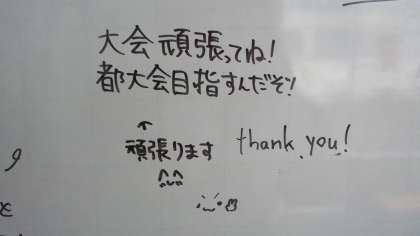 大会頑張ってね!
都大会目指すんだぞ!
頑張ります
thank you!